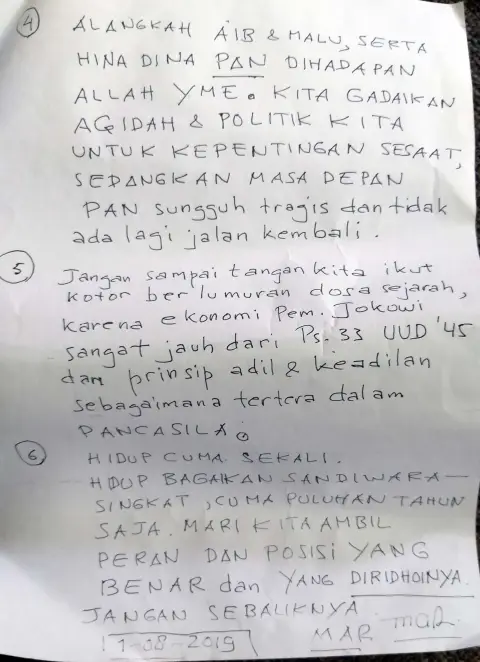 4 ALANGKAH AIB & MALU, SERTA
HINA DINA PAN DIHADAPAN
ALLAH YME. KITA GADAIKAN
AQIDAH & POLITIK KITA
UNTUK KEPENTINGAN SESAAT,
SEDANGKAN MASA DEPAN
PAN sungguh tragis dan tidak
ada lagi jalan kembali.
5 Jangan sampai tangan kita ikut
kotor berlumuran dosa sejarah,
karena ekonomi Pem. Jokowi
sangat jauh dari Ps. 33 UUD '45
dan prinsip adil & keadilan
sebagaimana tertera dalam
PANCASILA.
6 HIDUP CUMA SEKALI.
HIDUP BAGAIKAN SANDIWARA
SINGKAT, CUMA PULUHAN TAHUN
SAJA. MARI KITA AMBIL
PERAN DAN POSISI YANG
BENAR dan YANG DIRIDHOINYA.
JANGAN SEBALIKNYA
11-08-2019 MAR mar.